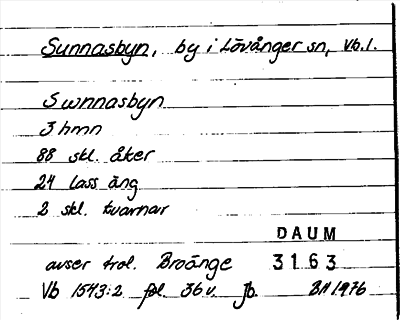 Sunnasbyn, by i Lövånger sn, Vb.l.
Swnnasbyn
3 hmn
88 skl. åker
24 lass äng
2 skl. kvarnar
DAUM
avser trol. Broänge 3163
Vb 1543:2 fol. 36 v. Jb. BH 1976